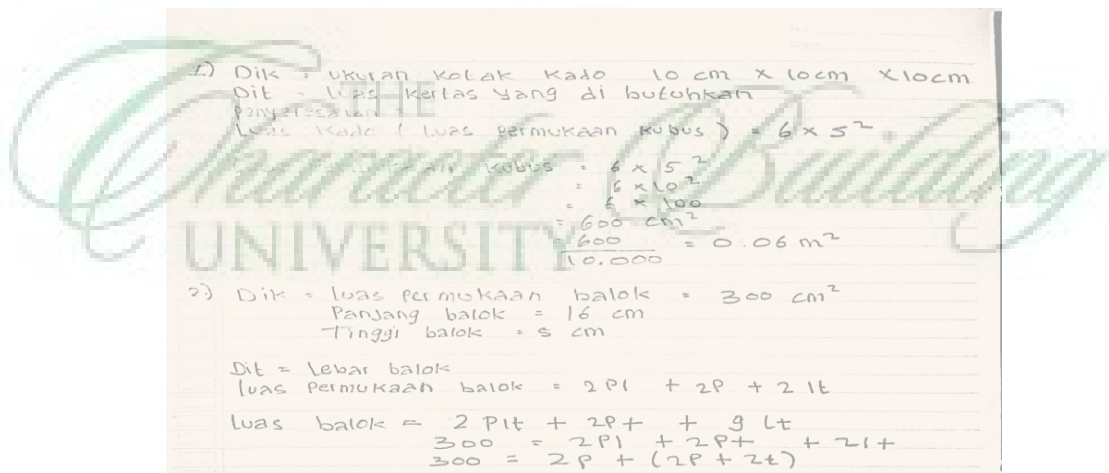 THE
Character Building
UNIVERSITY
1) Dik : ukuran kotak kado 10 cm x 10cm x10cm
Dit : luas kertas yang di butuhkan
Penyelesaian :
Luas kado ( luas permukaan kubus ) = 6 x 5²
kubus = 6 x 5²
= 6 x 10²
= 6 x 100
= 600 cm²
= 600 / 10.000 = 0.06 m²
2) Dik = luas permukaan balok = 300 cm²
Panjang balok = 16 cm
Tinggi balok = 5 cm
Dit = lebar balok
luas permukaan balok = 2Pl + 2P + 2 lt
luas balok = 2 Plt + 2Pt + 9 Lt
300 = 2Pl + 2Pt + 2lt
300 = 2P + (2P + 2t)